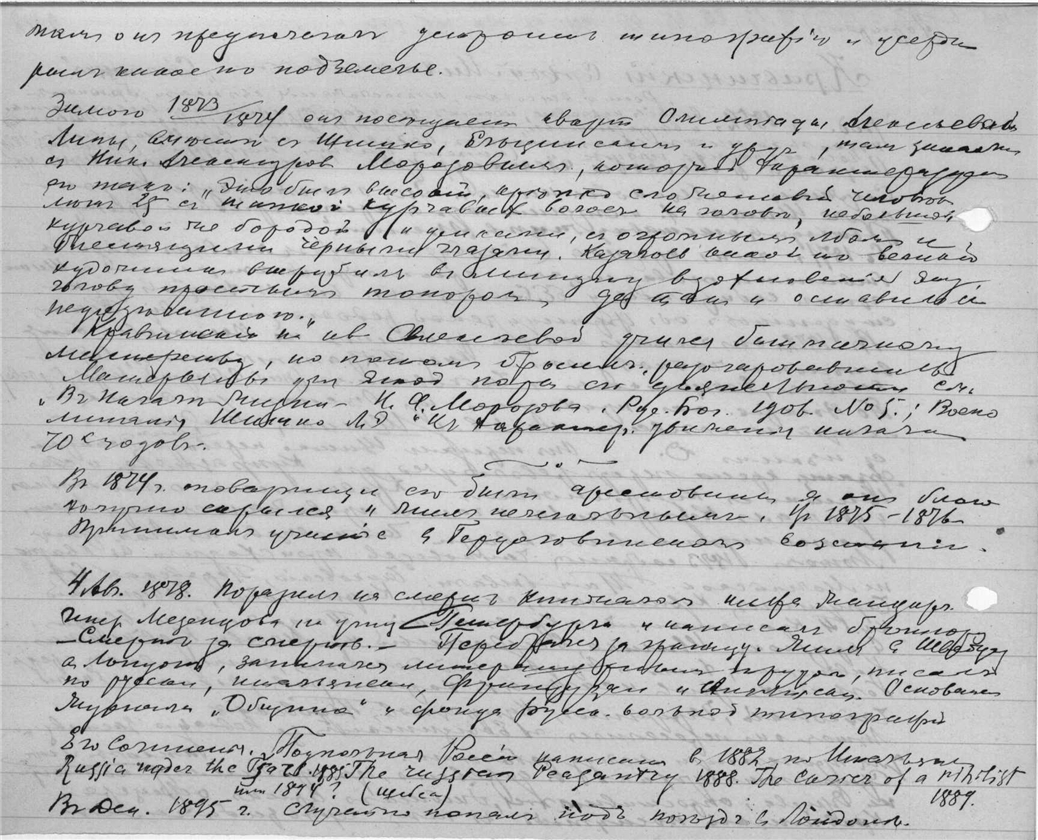 онъ предполагалъ устроить типографію и
какое то подземелье.
Зимою 1873/1874 онъ посещаетъ кварт. Олимпіады Алексѣевой
съ Шишко, Ельцинскимъ и друг., тамъ
съ Ник. Александров. Морозовымъ, который характеризуетъ
его такъ: „Это былъ высокій, крѣпко сложенный человѣкъ
лѣтъ 25 съ шапкой курчавыхъ волосъ на головѣ, небольшой
курчавой же бородой и усиками, съ огромнымъ лбомъ и
блестящими черными глазами. Казалось какой то великій
художникъ вырубилъ въ минуту вдохновенія эту
голову простымъ топоромъ, да такъ и оставилъ
недодѣланною."
Кравчинскій на кв. Алексѣевой учился башмачному
мастерству, но потомъ бросилъ, разочаровавшись
Матерьялы для этой поры его дѣятельности см.
„Въ началѣ жизни – Н. А. Морозова. Рус. Бог. 1906. No 5.; Воспо
минанія Шишко Л.Э. "Къ характер. движенія начала
70хъ годовъ.
Въ 1874 г. товарищи его были арестованы, а онъ благо
получно скрылся и жилъ нелегальнымъ. Въ 1875-1876
Принималъ участіе въ Герцоговинскомъ возстаніи.
4 Ав. 1878. Поразилъ на смерть кинжаломъ шефа жандарм.
генер. Мезенцова на улиц. Петербурга и написалъ брошюру
– Смерть за смерть. – Перебрался за границу. Жилъ въ Швейцар
а Лондонѣ, занимался литературнымъ трудомъ, писалъ
по русски, итальянски, Французски и Англійски. Основалъ
журналъ „Община" и фондъ Русск. вольной типографіи
Его сочинен. Подпольная Россія написана въ 1882 по Итальянски
Russia under the Tzars 1885 The russian Peasantry 1888. The career of a nihilist
1889.
или 1894? (щебса)
Въ Дек. 1895 г. случайно попалъ подъ поѣздъ въ Лондонѣ.